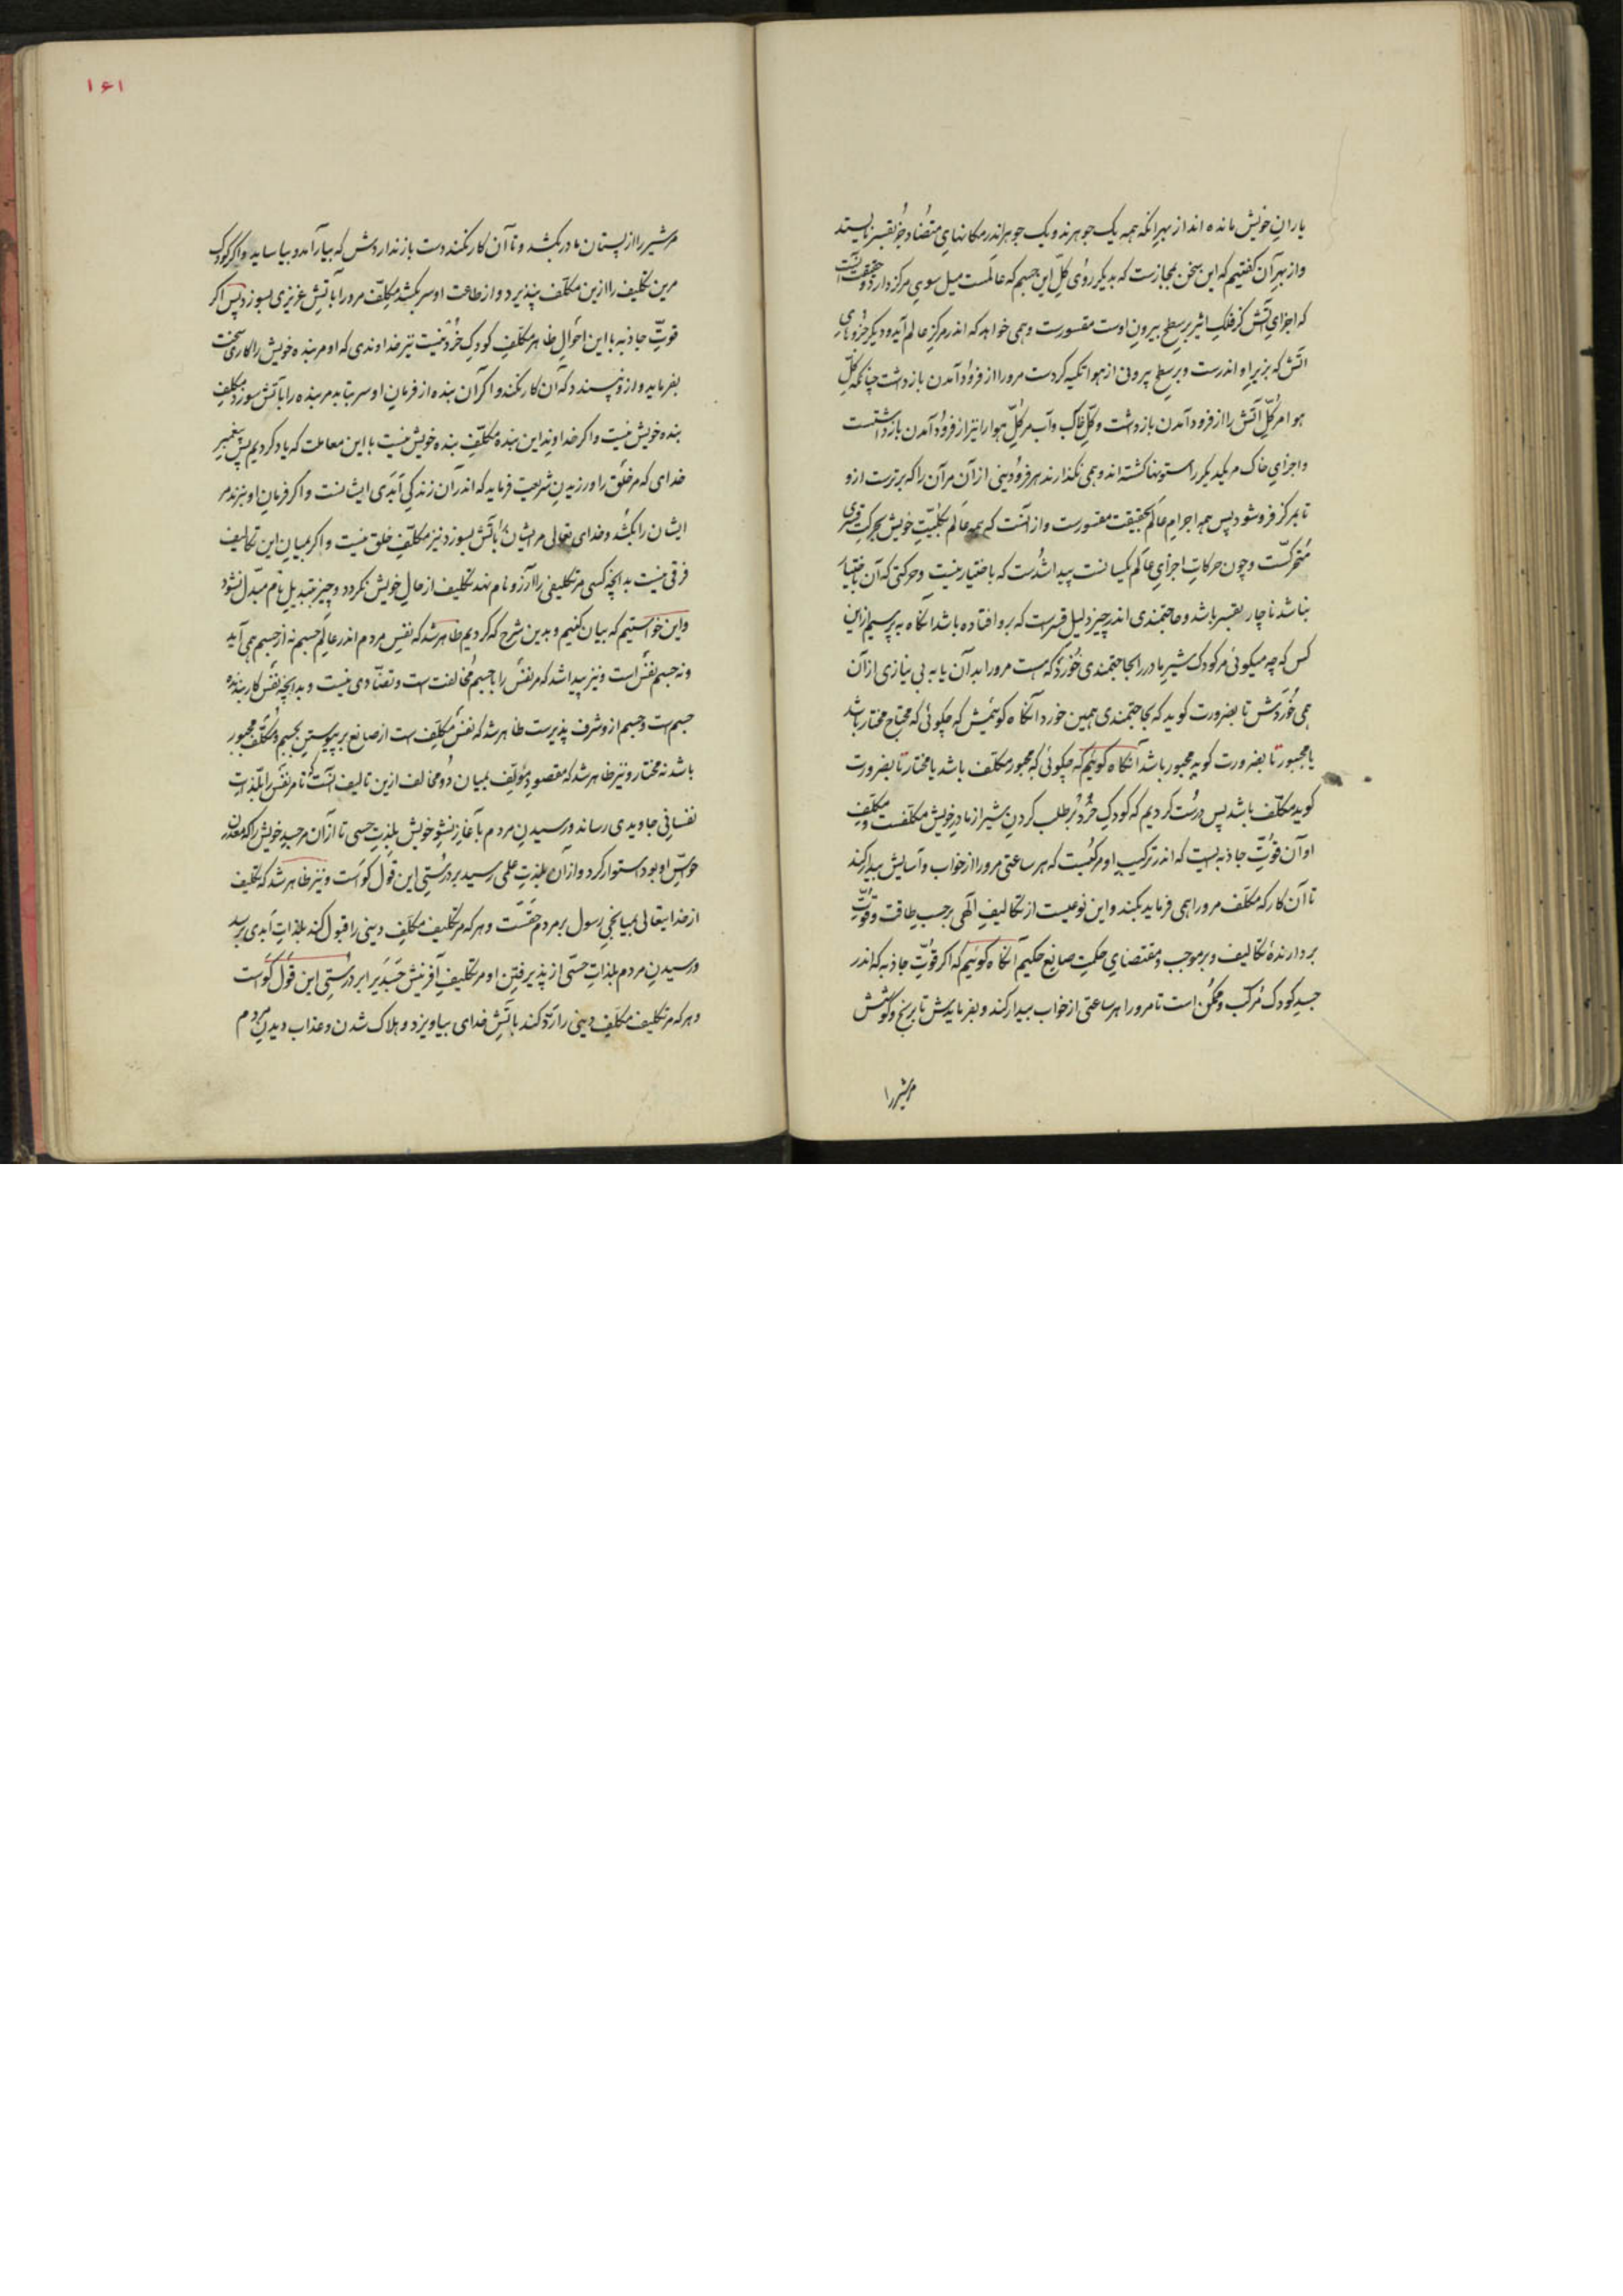 یاران خویش مانده اند از بهر آنکه همه یک جوهرند و یک جوهر اندر مکانهای متضاد جز بقسر نایستد
و از بهر آن گفتیم که این سخن بمجازست که بدیگر روی کلّ این جسم که عالمست میل سوی مرکز دارد و حقیقت آنست
که اجزای آتش کز فلک اثیر بر سطح بیرون اوست مقسورست و همی خواهد که اندر مرکز عالم آید و دیگر جزوهای
آتش که بزیر او اندرست و بر سطح بیرونی از هوا تکیه کردست مرورا از فرود آمدن بازداشت چنانکه کلّ
هوا مر کلّ آتش را از فرود آمدن بازداشت و کلّ خاک و آب مر کلّ هوا را نیز از فرود آمدن بازداشتست
و اجزای خاک مر یکدیگر را ستونها گشته اند و همی نگذارند هر فرودینی از آن مر آن را که برترست ازو
تا بمرکز فرو شود پس همه اجرام عالم بحقیقت مقسورست و از آنست که همه عالم بکلیّت خویش بحرکت قسری
متحرّکست و چون حرکات اجزای عالم یکسانست پیدا شدست که باختیار نیست و حرکتی که آن باختیار
نباشد ناچار بقسر باشد و حاجتمندی اندر چیز دلیل قسرست که برو افتاده باشد آنگاه بپرسیم از این
کس که چه میگوئی مر کودک شیر مادر را بحاجتمندی خورد که هست مرورا بدآن یا به بی نیازی از آن
همی خوردش تا بضرورت گوید که بحاجتمندی همین خورد آنگاه گوئیمش که چگوئی که محتاج مختار باشد
یا مجبور تا بضرورت گوید مجبور باشد آنگاه گوئیم که چگوئی که مجبور مکلّف باشد یا مختار تا بضرورت
گوید مکلّف باشد پس درست کردیم که کودک خُرد بر طلب کردن شیر از مادر خویش مکلّفست و مکلّف
او آن قوّت جاذبه است که اندر ترکیب او مرکّبست که هر ساعتی مرورا از خواب و آسایش بیدار کند
تا آن کار که مکلّف مرورا همی فرماید بکند و این نوعیست از تکالیف الهی برحسب طاقت و قوّت
بردارندۀ تکالیف و بر موجب و مقتضای حکمت صانع حکیم آنگاه گوئیم که اگر قوّت جاذبه که اندر
جسد کودک مرکّب و ممکّن است تا مرورا هر ساعتی از خواب بیدار کند و بفرمایدش تا برنج و کوشش
مر شیر را
۱۶۱
مر شیر را از پستان مادر بکشد و تا آن کار نکند دست بازنداردش که بیارآمد و بیاساید و اگر کودک
مرین تکلیف را ازین مکلّف نپذیرد و از طاعت او سر بکشد مکلّف مرورا بآتش غریزی بسوزد پس اگر
قوّت جاذبه با این احوال ظاهر مکلّف کودک خُرد نیست نیز خداوندی که او مر بنده خویش را کاری سخت
بفرماید و ازو نپسندد که آن کار نکند و اگر آن بنده از فرمان او سر بتابد مر بنده را بآتش بسوزد مکلّف
بنده خویش نیست و اگر خداوند این بنده مکلّف بنده خویش نیست با این معاملت که یاد کردیم پس پیغمبر
خدای که مر خلق را ورزیدن شریعت فرماید که اندر آن زندگی ابدی ایشانست و اگر فرمان او نبرند مر
ایشان را بکشد و خدای تعالی مر ایشان را بآتش بسوزد نیز مکلّف خلق نیست و اگر بمیان این تکالیف
فرقی نیست بدانچه کسی مر تکلیفی را آرزو نام نهد تکلیف از حال خویش نگردد و چیز بتبدیل نام مبدّل نشود
و این خواستیم که بیان کنیم و بدین شرح که کردیم ظاهر شد که نفس مردم اندر عالم جسم نه از جسم همی آید
و نه جسم نفس است و نیز پیدا شد که مر نفس را با جسم مخالفت است و تضادی نیست و بدانچه نفس کار بندندۀ
جسم است و جسم ازو شرف پذیرست ظاهر شد که نفس مکلّف است از صانع بر پیوستن بجسم و مکلّف مجبور
باشد نه مختار و نیز ظاهر شد که مقصود مؤلّف بمیان دو مخالف ازین تالیف آنست که تا مر نفس را بلذّات
نفسانی جاویدی رساند و رسیدن مردم باغاز نشو خویش بلذت حسی تا از آن مر جسد خویش را که معدن
حواسّ او بود استوار کرد و از آن بلذت علمی رسید بر درستی این قول گواست و نیز ظاهر شد که تکلیف
از خدایتعالی بمیانجی رسول بر مردم حقّست و هر که مر تکلیف مکلّف دینی را قبول کند بلذات ابدی رسد
و رسیدن مردم بلذات حسّی از پذیرفتن او مر تکلیف آفرینش جسد را بر درستی این قول گواست
و هر که مر تکلیف مکلّف دینی را ردّ کند بآتش خدای بیاویزد و هلاک شدن و عذاب دیدن مردم